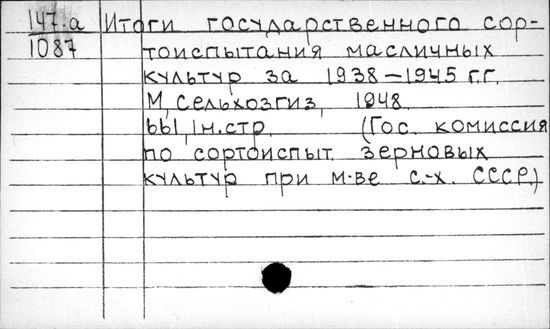 147.а Итоги государственного сор-
1087 тоиспытания масличных
культур за 1938–1945 г.г.
М, Сельхозгиз, 1948.
661, 1н.стр. (Гос. комиссия
по сортоиспыт. зерновых
культур при м-ве с.-х. СССР.)